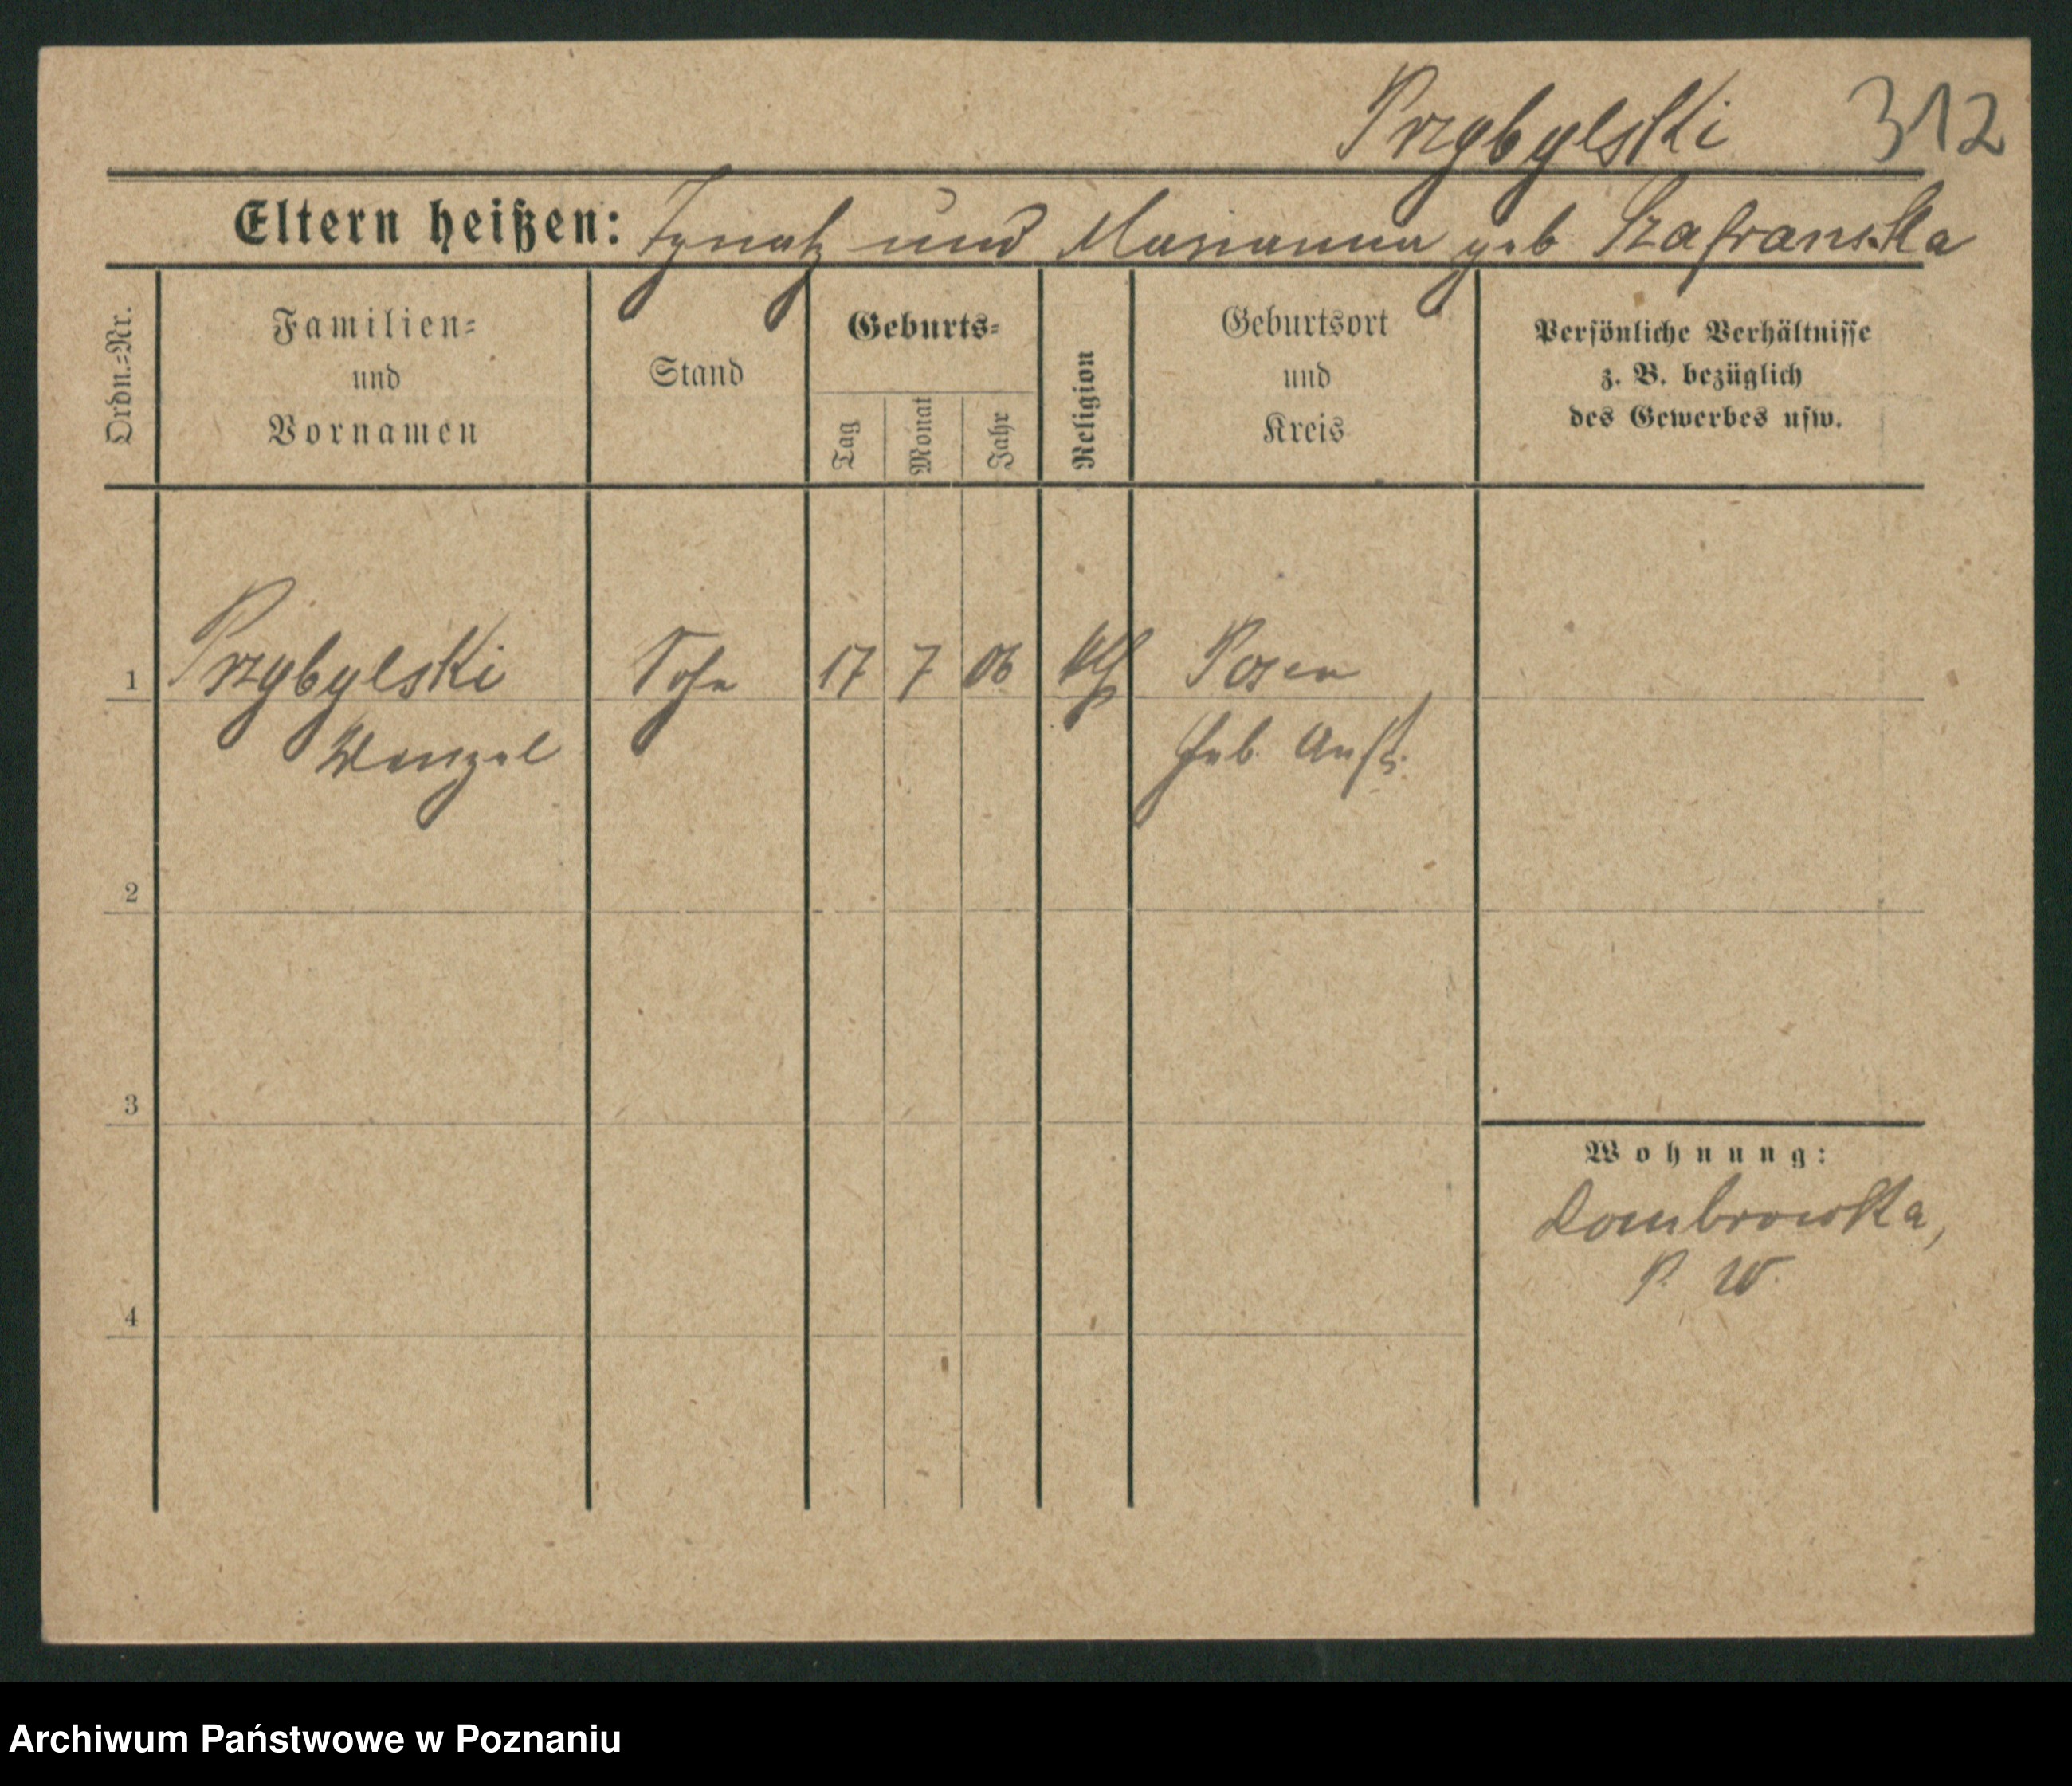 Przybylski 312
Eltern heißen: Ignatz und Marianna geb Szafranska
Ordn.=Nr.
Familien=
und
Vornamen
Stand
Geburts=
Tag
Monat
Jahr
Religion
Geburtsort
und
Kreis
Persönliche Verhältnisse
z. B. bezüglich
des Gewerbes usw.
1 Przybylski Sohn 17 7 06 kth Posen
Wenzel Heb. Anst.
2
3
Wohnung:
Dombrowka,
P. W.
4
Archiwum Państwowe w Poznaniu